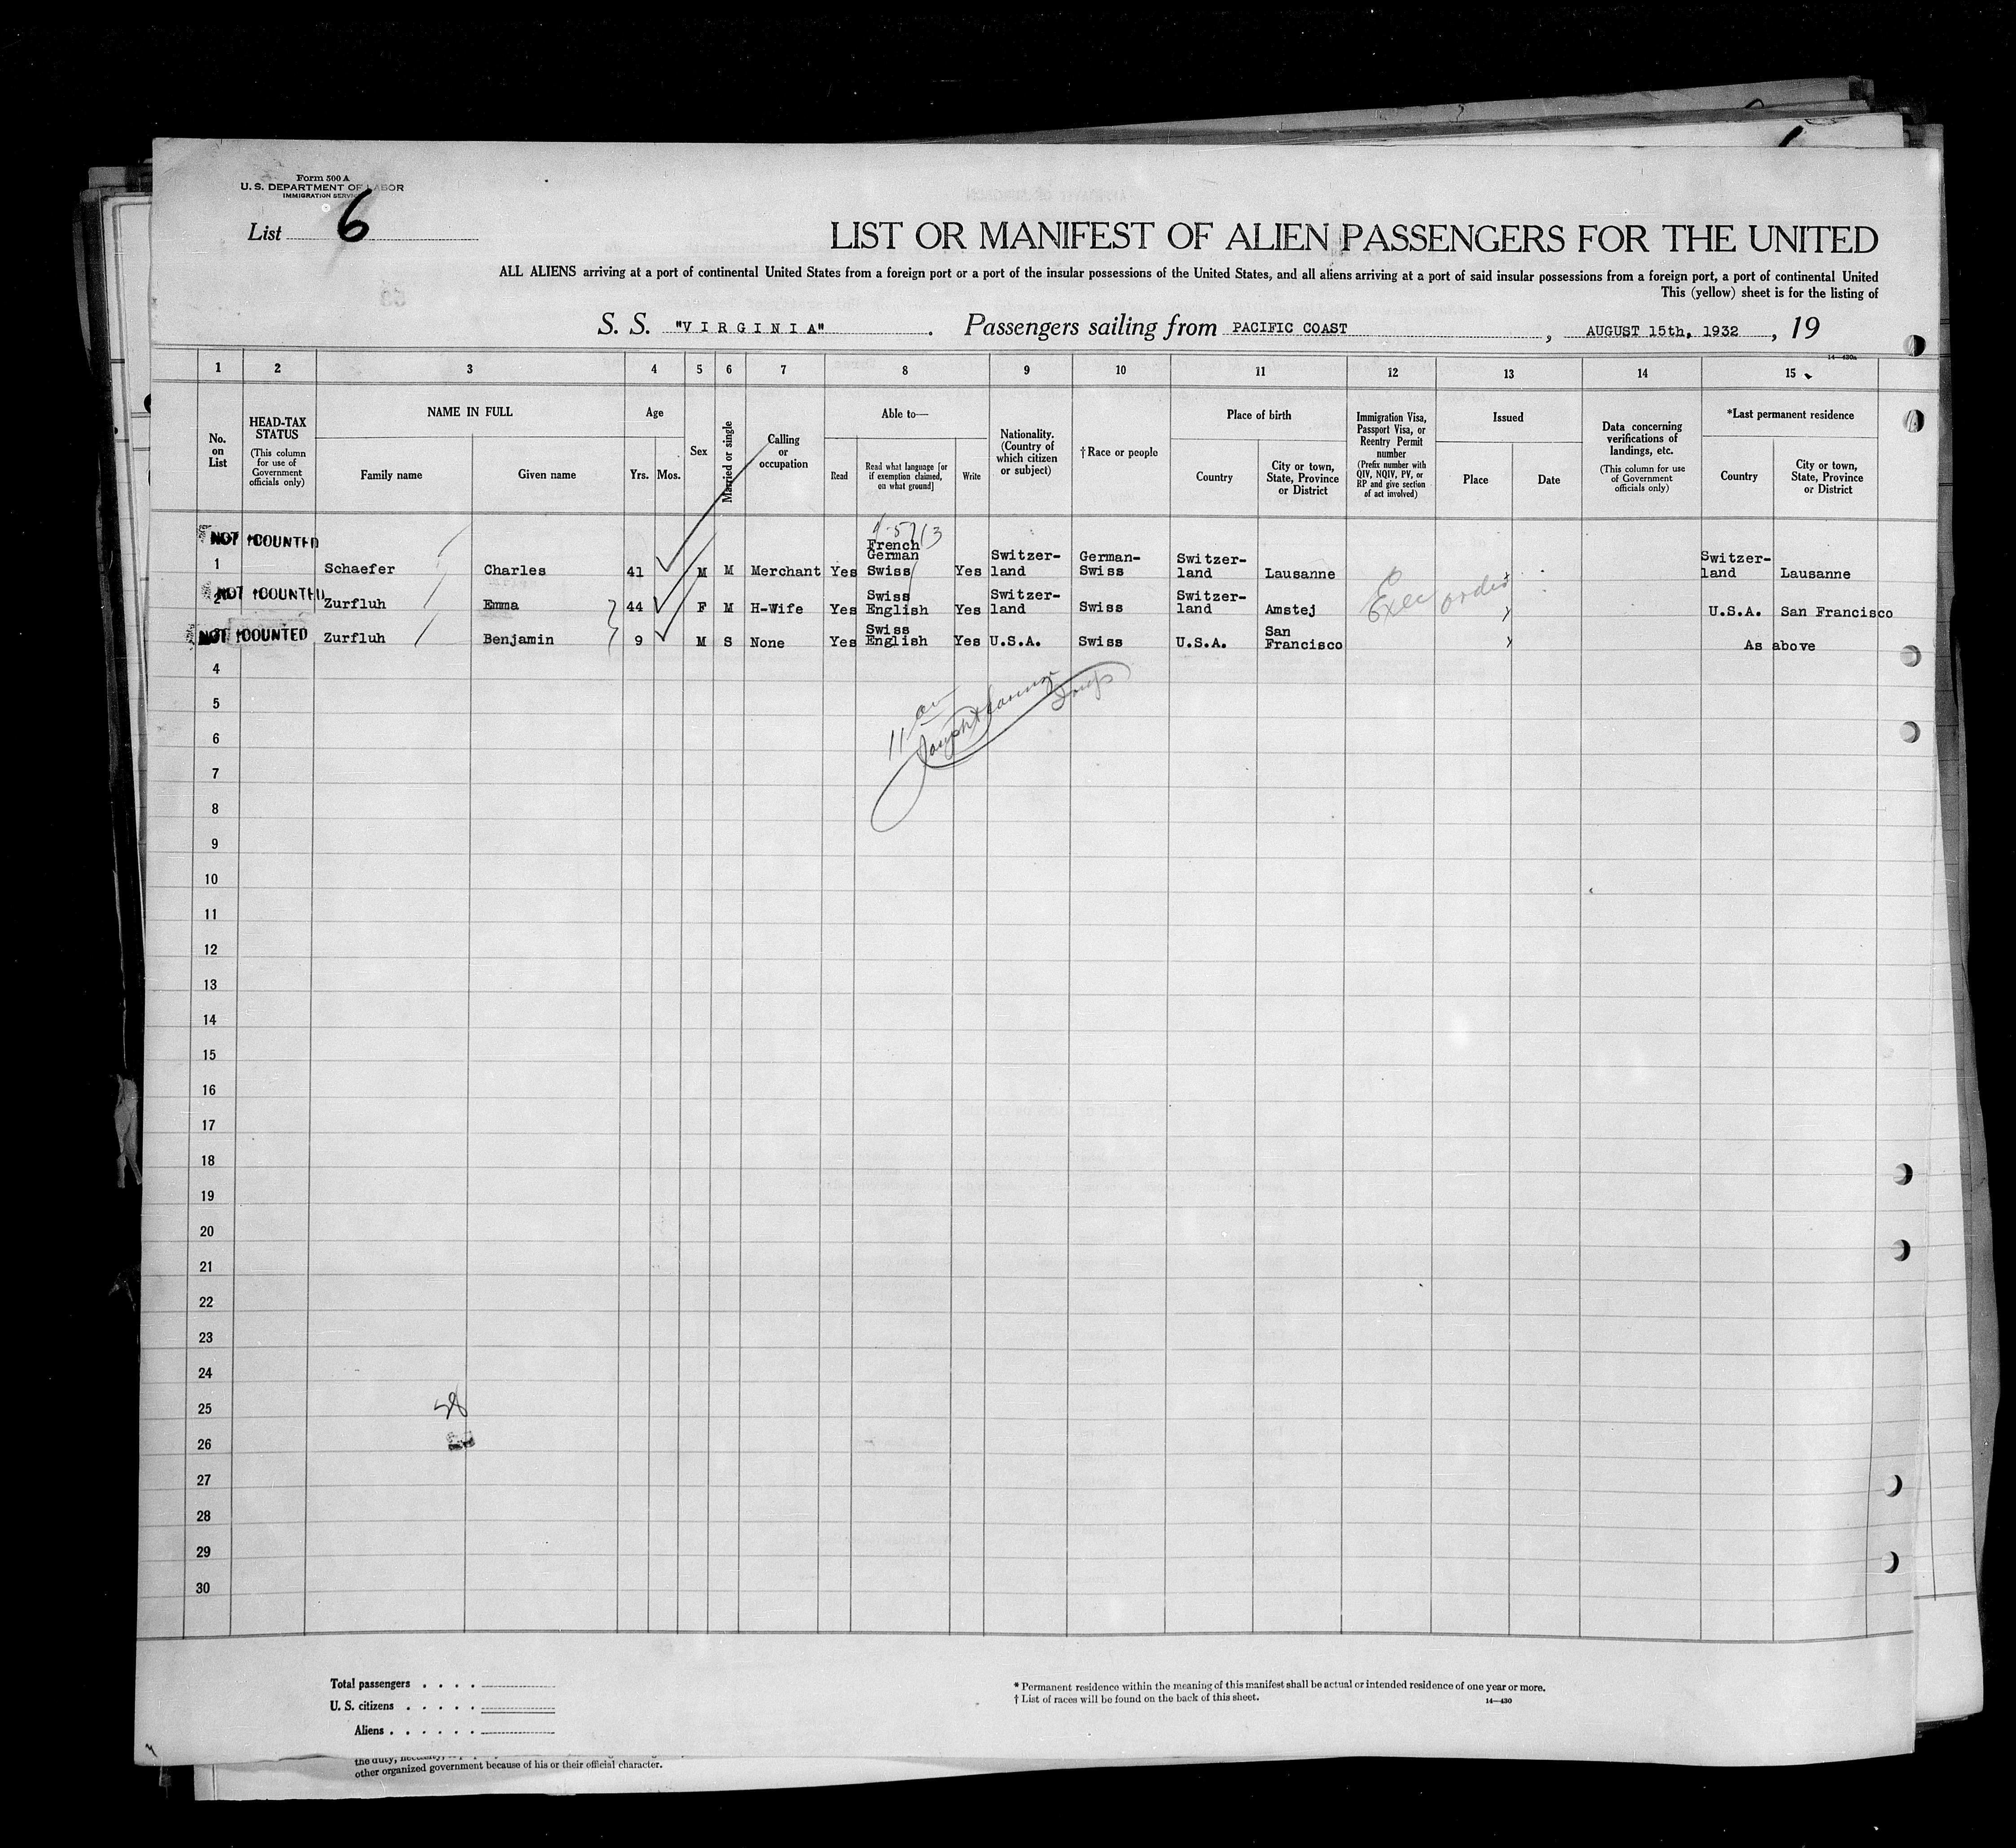 Form 500 A
U. S. DEPARTMENT OF LABOR
IMMIGRATION SERVICE
List 6
LIST OR MANIFEST OF ALIEN PASSENGERS FOR THE UNITED
ALL ALIENS arriving at a port of continental United States from a foreign port or a port of the insular possessions of the United States, and all aliens arriving at a port of said insular possessions from a foreign port, a port of continental United
This (yellow) sheet is for the listing of
S. S. "VIRGINIA". Passengers sailing from PACIFIC COAST, AUGUST 15th, 1932, 19
14—430a
1 2 3 4 5 6 7 8 9 10 11 12 13 14 15
No. on List
HEAD-TAX STATUS (This column for use of Government officials only)
NAME IN FULL
Family name Given name
Age
Yrs. Mos.
Sex
Married or single
Calling or occupation
Able to—
Read
Read what language [or if exemption claimed, on what ground]
Write
Nationality. (Country of which citizen or subject)
†Race or people
Place of birth
Country
City or town, State, Province or District
Immigration Visa, Passport Visa, or Reentry Permit number (Prefix number with QIV, NQIV, PV, or RP and give section of act involved)
Issued
Place Date
Data concerning verifications of landings, etc. (This column for use of Government officials only)
*Last permanent residence
Country
City or town, State, Province or District
NOT COUNTED
1 Schaefer Charles 41 M M Merchant Yes French German Swiss Yes Switzer-land German-Swiss Switzer-land Lausanne Switzer-land Lausanne
NOT COUNTED
2 Zurfluh Emma 44 F M H-Wife Yes Swiss English Yes Switzer-land Swiss Switzer-land Amstej Exec order U.S.A. San Francisco
NOT COUNTED
Zurfluh Benjamin 9 M S None Yes Swiss English Yes U.S.A. Swiss U.S.A. San Francisco As above
4
5
6
7
8
9
10
11
12
13
14
15
16
17
18
19
20
21
22
23
24
25
26
27
28
29
30
Total passengers . . . .
U. S. citizens . . . . .
Aliens . . . . . .
* Permanent residence within the meaning of this manifest shall be actual or intended residence of one year or more.
† List of races will be found on the back of this sheet.
14—430
other organized government because of his or their official character.